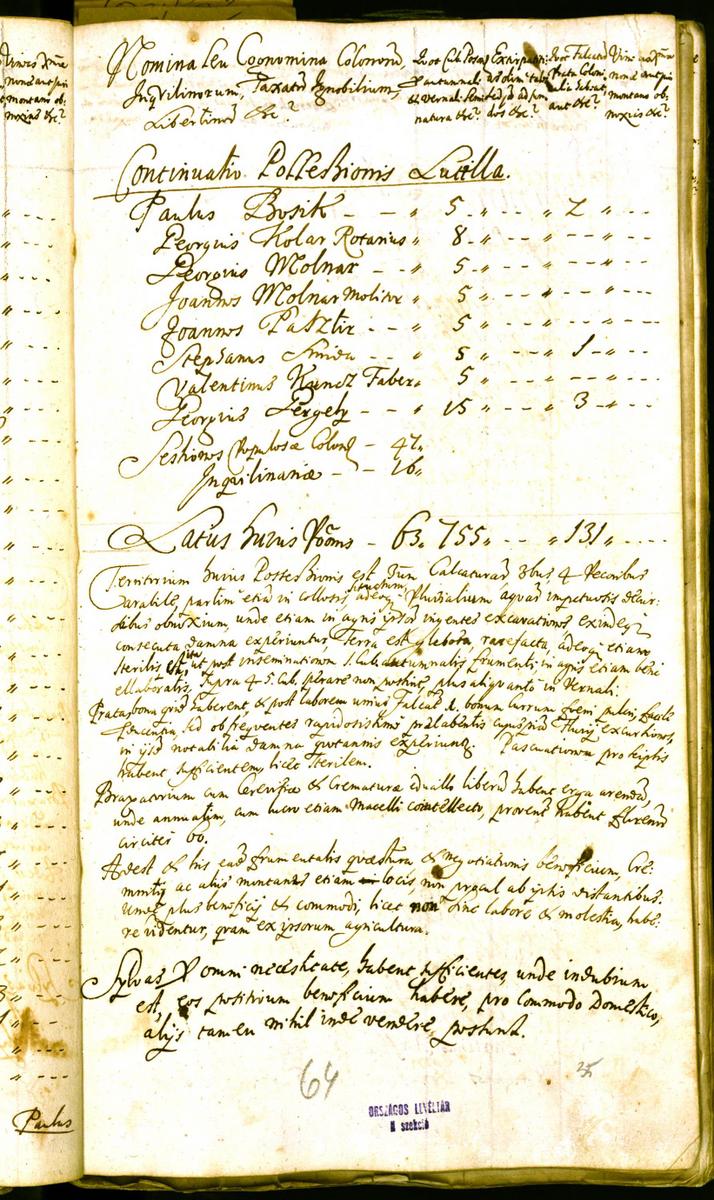 Nomina seu Cognomina Colonorum,
Inquilinorum, Taxatorum Ignobilium,
Libertinorum &c?
Quot Cub. Poson.
autumnali
& vernali Seminat
natura &c?
Quot Falcator.
Prata Coloni
aut &c?
Vineas
nonae aut
montano ob:
noxias &c?
Vineas
nonae aut
montano ob:
noxias &c?
Continuatio Possessionis Lucilla.
Paulus Bosik - - „ 5 „ - - „ 2 „ - - -
Georgius Kolar Rotarius „ 8 „ - - „ - - „ - - -
Georgius Molnar - - „ 5 „ - - „ - - „ - - -
Joannes Molnar Molitor „ 5 „ - - „ - - „ - - -
Joannes Pasztir - - „ 5 „ - - „ - - „ - - -
Stephanus Smida - - „ 5 „ - - „ 1 „ - - -
Valentinus Kuncz Faber „ 5 „ - - „ - - „ - - -
Georgius Gergely - - „ 15 „ - - „ 3 „ - - -
Sessiones Populosae Colon. - 47„
Inquilinariae - - 16„
Latus huius Possionis - 63„ 755„ - - „ 131 „ - - - -
Territorium huius Possessionis est Calcaturae, 3bus, 4 Pecoribus
arabile, partim etiam in collosis, adeoque Pluvialium aquarum impetuosis decur:
sibus obnoxium, unde etiam in agris ipsorum ingentes excavationes, exindeque
consecuta damna experiuntur, Terra est glebosa, rarefacta, adeoque etiam
sterilis est, ita, ut post inseminationem 1. Cub. autumnalis frumenti in agris etiam bene
ellaboratis, supra 4 5 Cub. sperare non possint, plus aliquanto in Vernali.
Prata bona quidem haberent & post laborem unius Falcat. 1. bonum currum foeni pulchri, facile
educentia, sed ob frequentes rapidosissimi praelabentis Fluvij excursiones,
in ijsdem notabilia damna quotannis experiuntur. Pascuationem pro ipsis
habent sufficientem, licet sterilem.
Braxatorium cum Cerevisiae & Crematurae educillo liberum habent erga arendam,
unde annuatim, cum lucro etiam Macelli cointellecto, proventum habent florenorum
circiter 60.
Adest & his eadem frumentalis quaestura & negotiationis beneficium, Cre:
mnitzij ac alijs montanis etiam locis, non procul ab ipsis distantibus.
Unde plus beneficij & commodi, licet non sine labore & molestia, habe:
re videntur, quam ex ipsorum agricultura.
Sylvas pro omni necessitate, habent sufficientes, unde indubium
est, eos positivum beneficium habere, pro Commodo Domestico,
alijs tamen nihil inde vendere possunt.
Paulus
64
25
ORSZÁGOS LEVÉLTÁR
N szekció